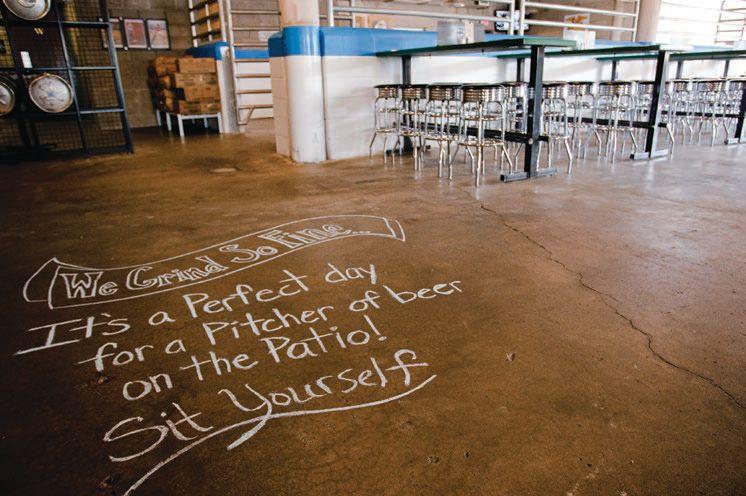 We Grind So Fine...
It's a Perfect day
for a Pitcher of beer
on the Patio!
Sit Yourself